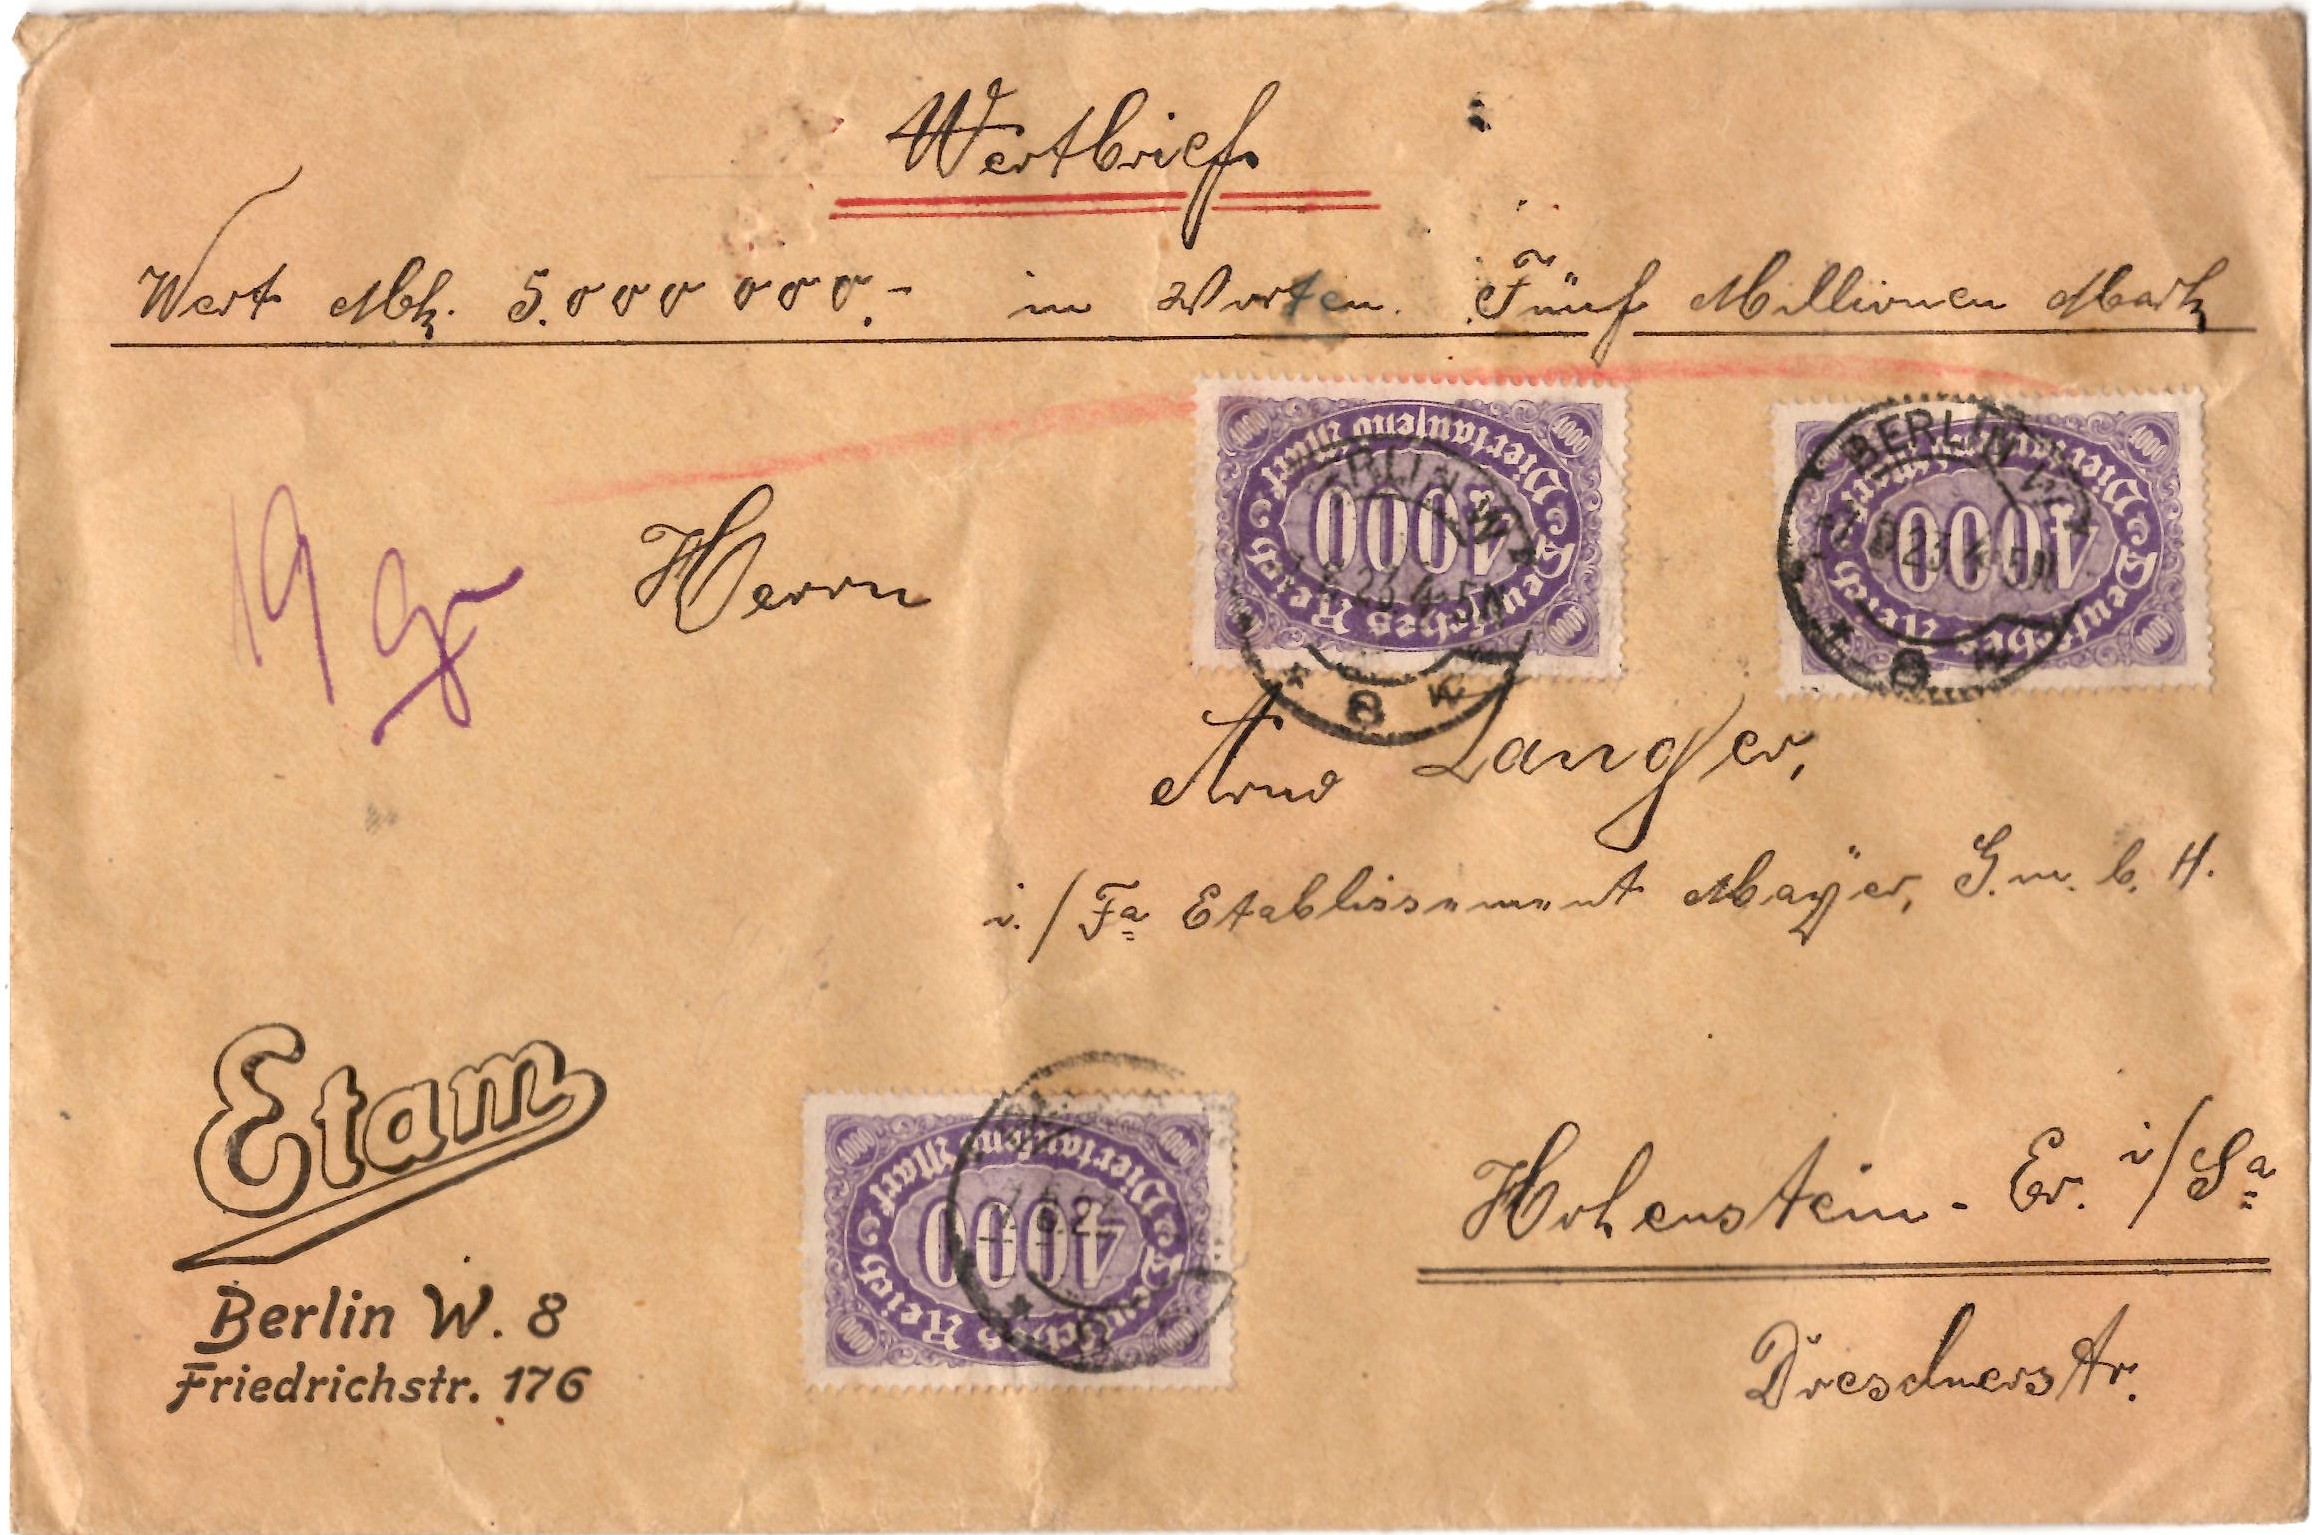 Wertbrief
Wert Mk. 5.000 000.- in Worten. Fünf Millionen Mark
19 gr
Herrn
4000
Viertausend Mark
Deutsches Reich
BERLIN W
23 4-5N
* 8 w
4000
Viertausend Mark
Deutsches Reich
BERLIN W
23 4-5N
* 8
Arno Langer,
i./Fa Etablissement Mayer, G.m.b.H.
Etam
Berlin W. 8
Friedrichstr. 176
4000
Viertausend Mark
Deutsches Reich
Hohenstein-Er. i/Sa
Dresdnerstr.